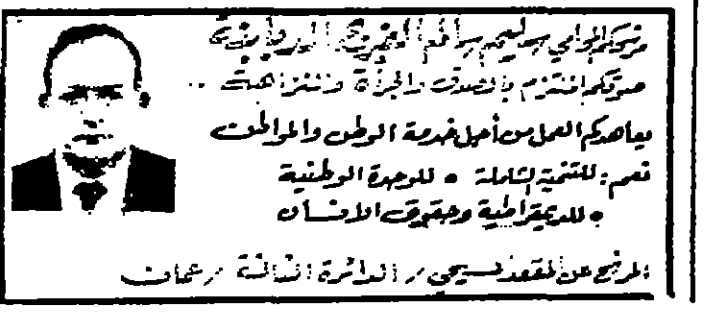 مرشحكم المحامي سليم سالم
صوتكم الملتزم بالصدق والجرأة والنزاهة ..
يعاهدكم العمل من أجل خدمة الوطن والمواطن
نعم : للتنمية الشاملة • للوحدة الوطنية
• للديمقراطية وحقوق الانسان
المرشح عن المقعد المسيحي / الدائرة الثالثة / عمان